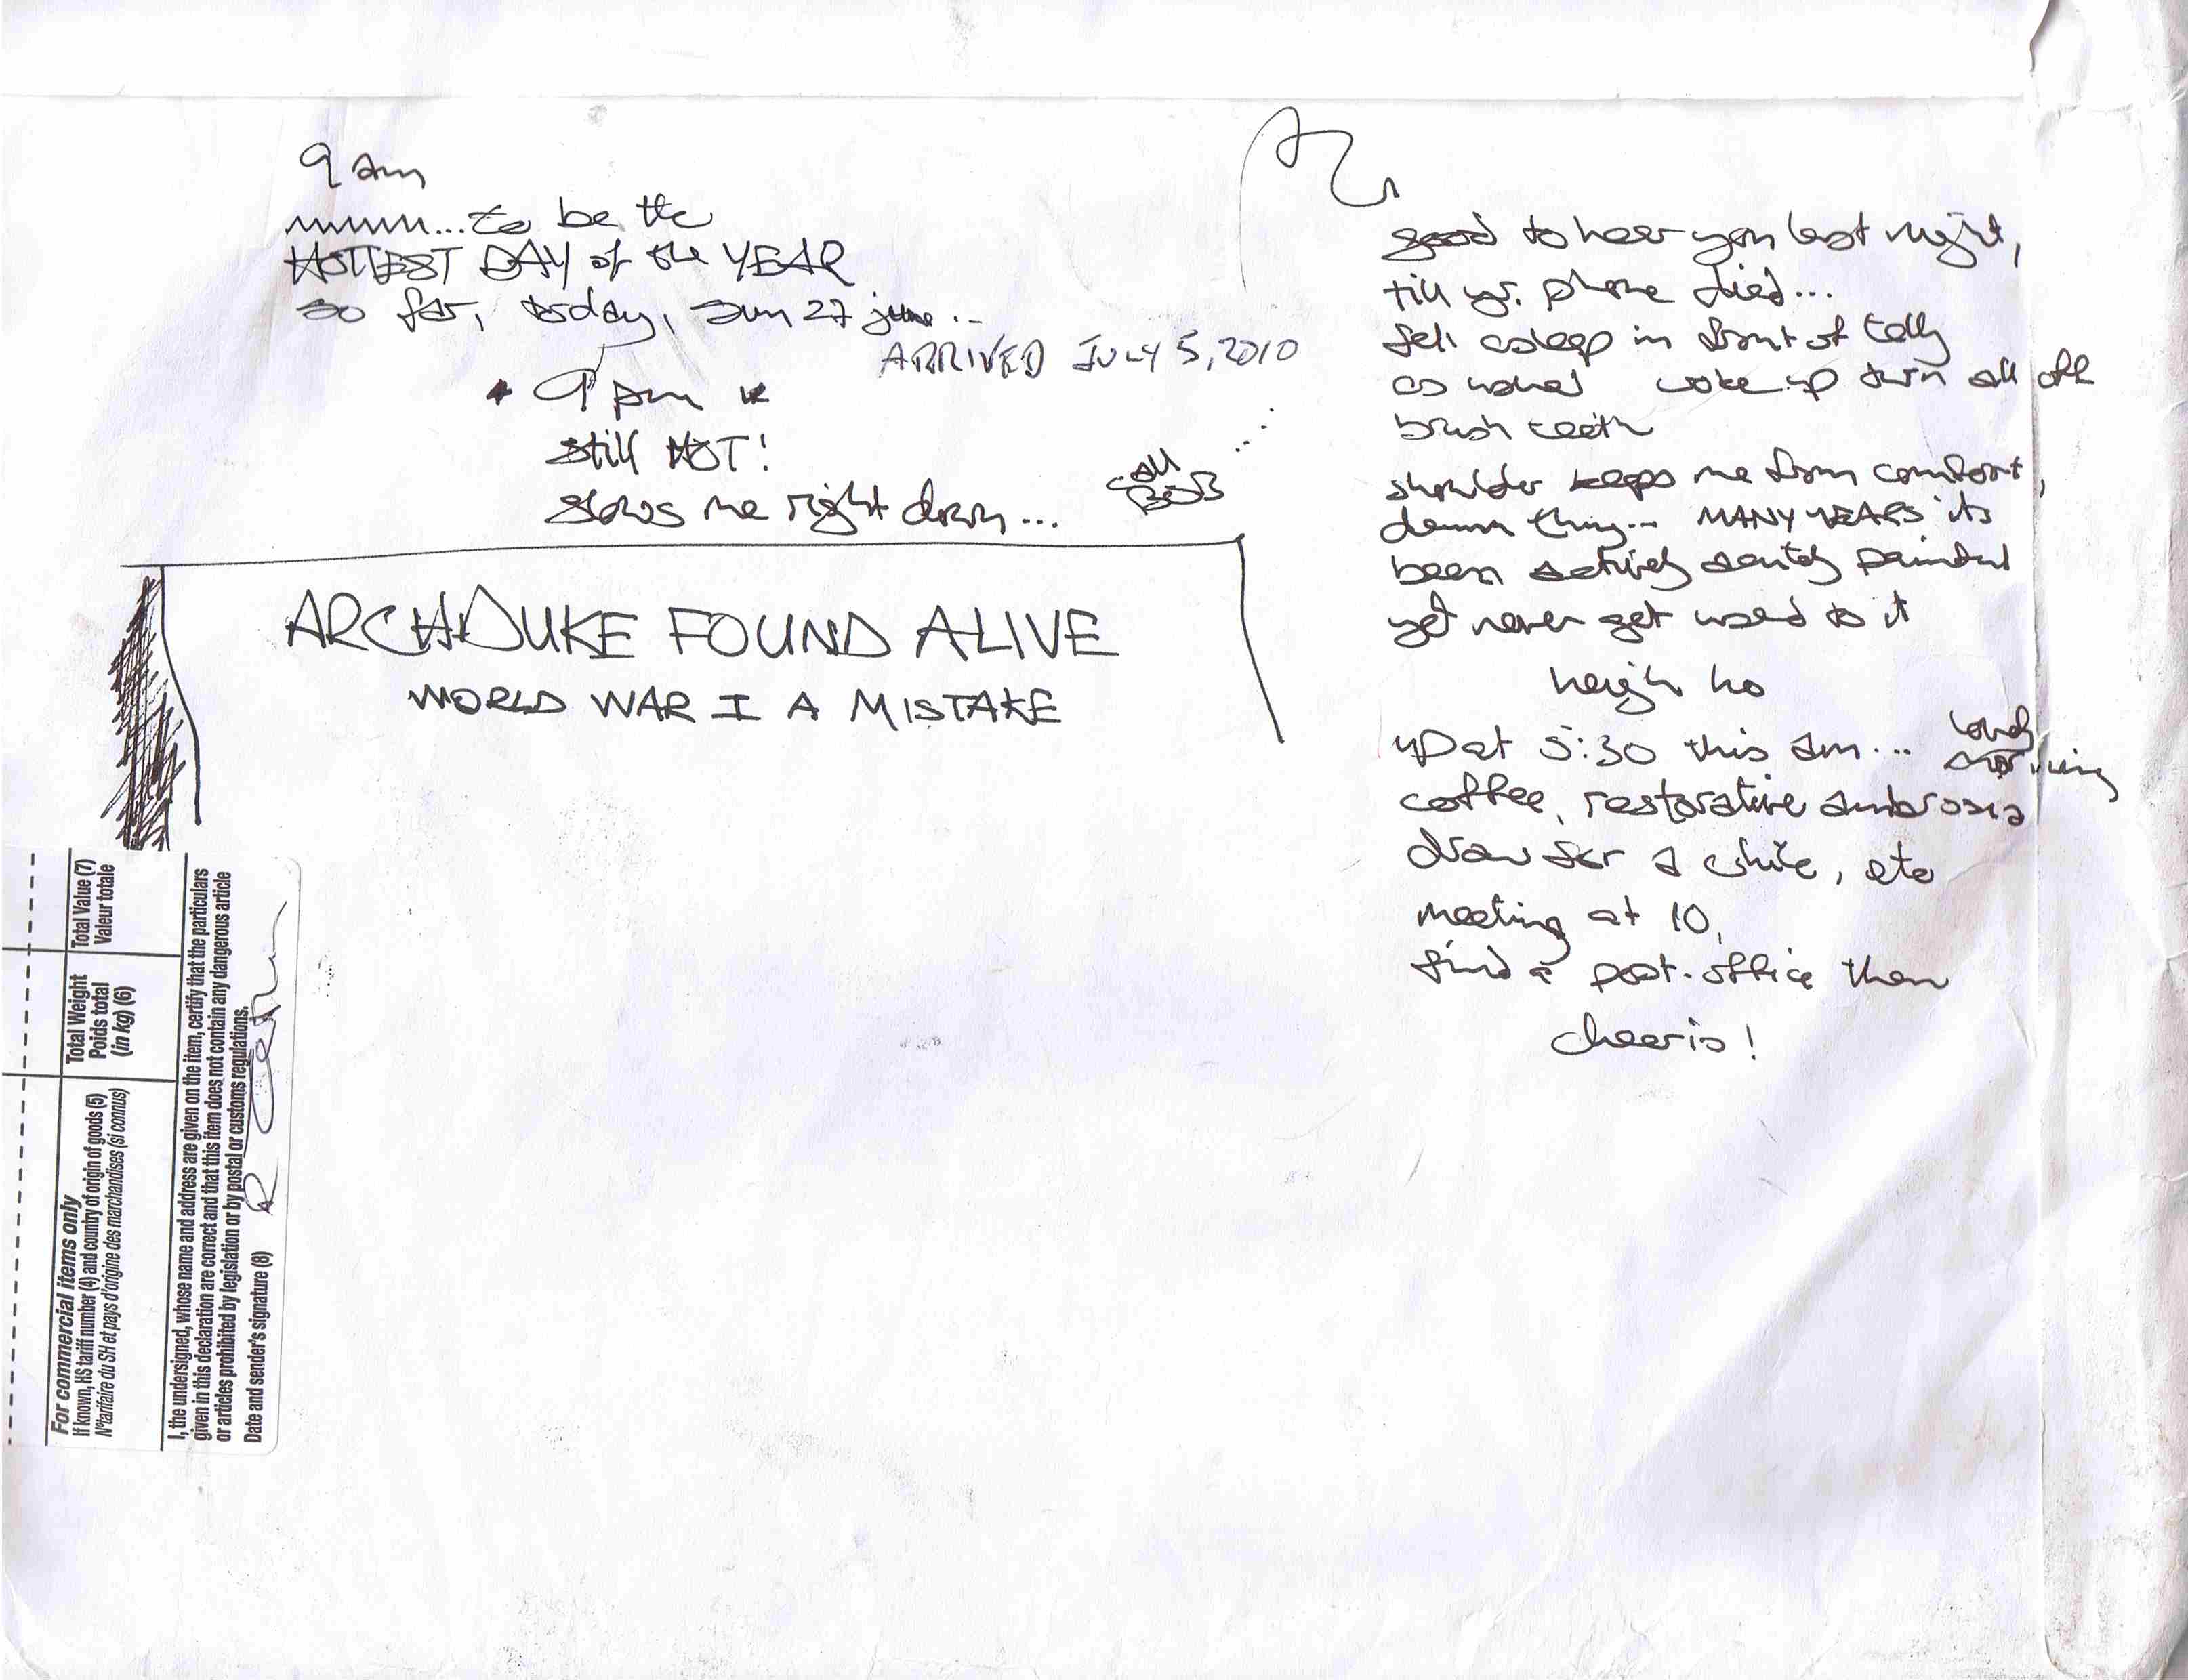 9 am
mmmm...to be the
HOTTEST DAY of the YEAR
so far, today, sun 27 june...
ARRIVED JULY 5, 2010
9 pm
still HOT!
slows me right down...
call
BOB
ARCHDUKE FOUND ALIVE
WORLD WAR I A MISTAKE
good to hear you last night,
till yr. phone died...
fell asleep in front of telly
as usual woke up turn all off
brush teeth
shoulder keeps me from comfort,
damn thing... MANY YEARS its
been actively painful
yet never get used to it
heigh ho
up at 5:30 this am... lovely
morning
coffee, restorative ambrosia
draw for a while, etc
meeting at 10,
find a post-office then
cheerio!
Total Value (7)
Valeur totale
Total Weight
Poids total
(in kg) (6)
For commercial items only
If known, HS tariff number (4) and country of origin of goods (5)
N°tarifaire du SH et pays d'origine des marchandises (si connus)
I, the undersigned, whose name and address are given on the item, certify that the particulars
given in this declaration are correct and that this item does not contain any dangerous article
or articles prohibited by legislation or by postal or customs regulations.
Date and sender's signature (8) R